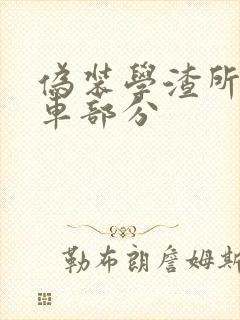 偽裝學渣所
車部分
勒布朗詹姆斯